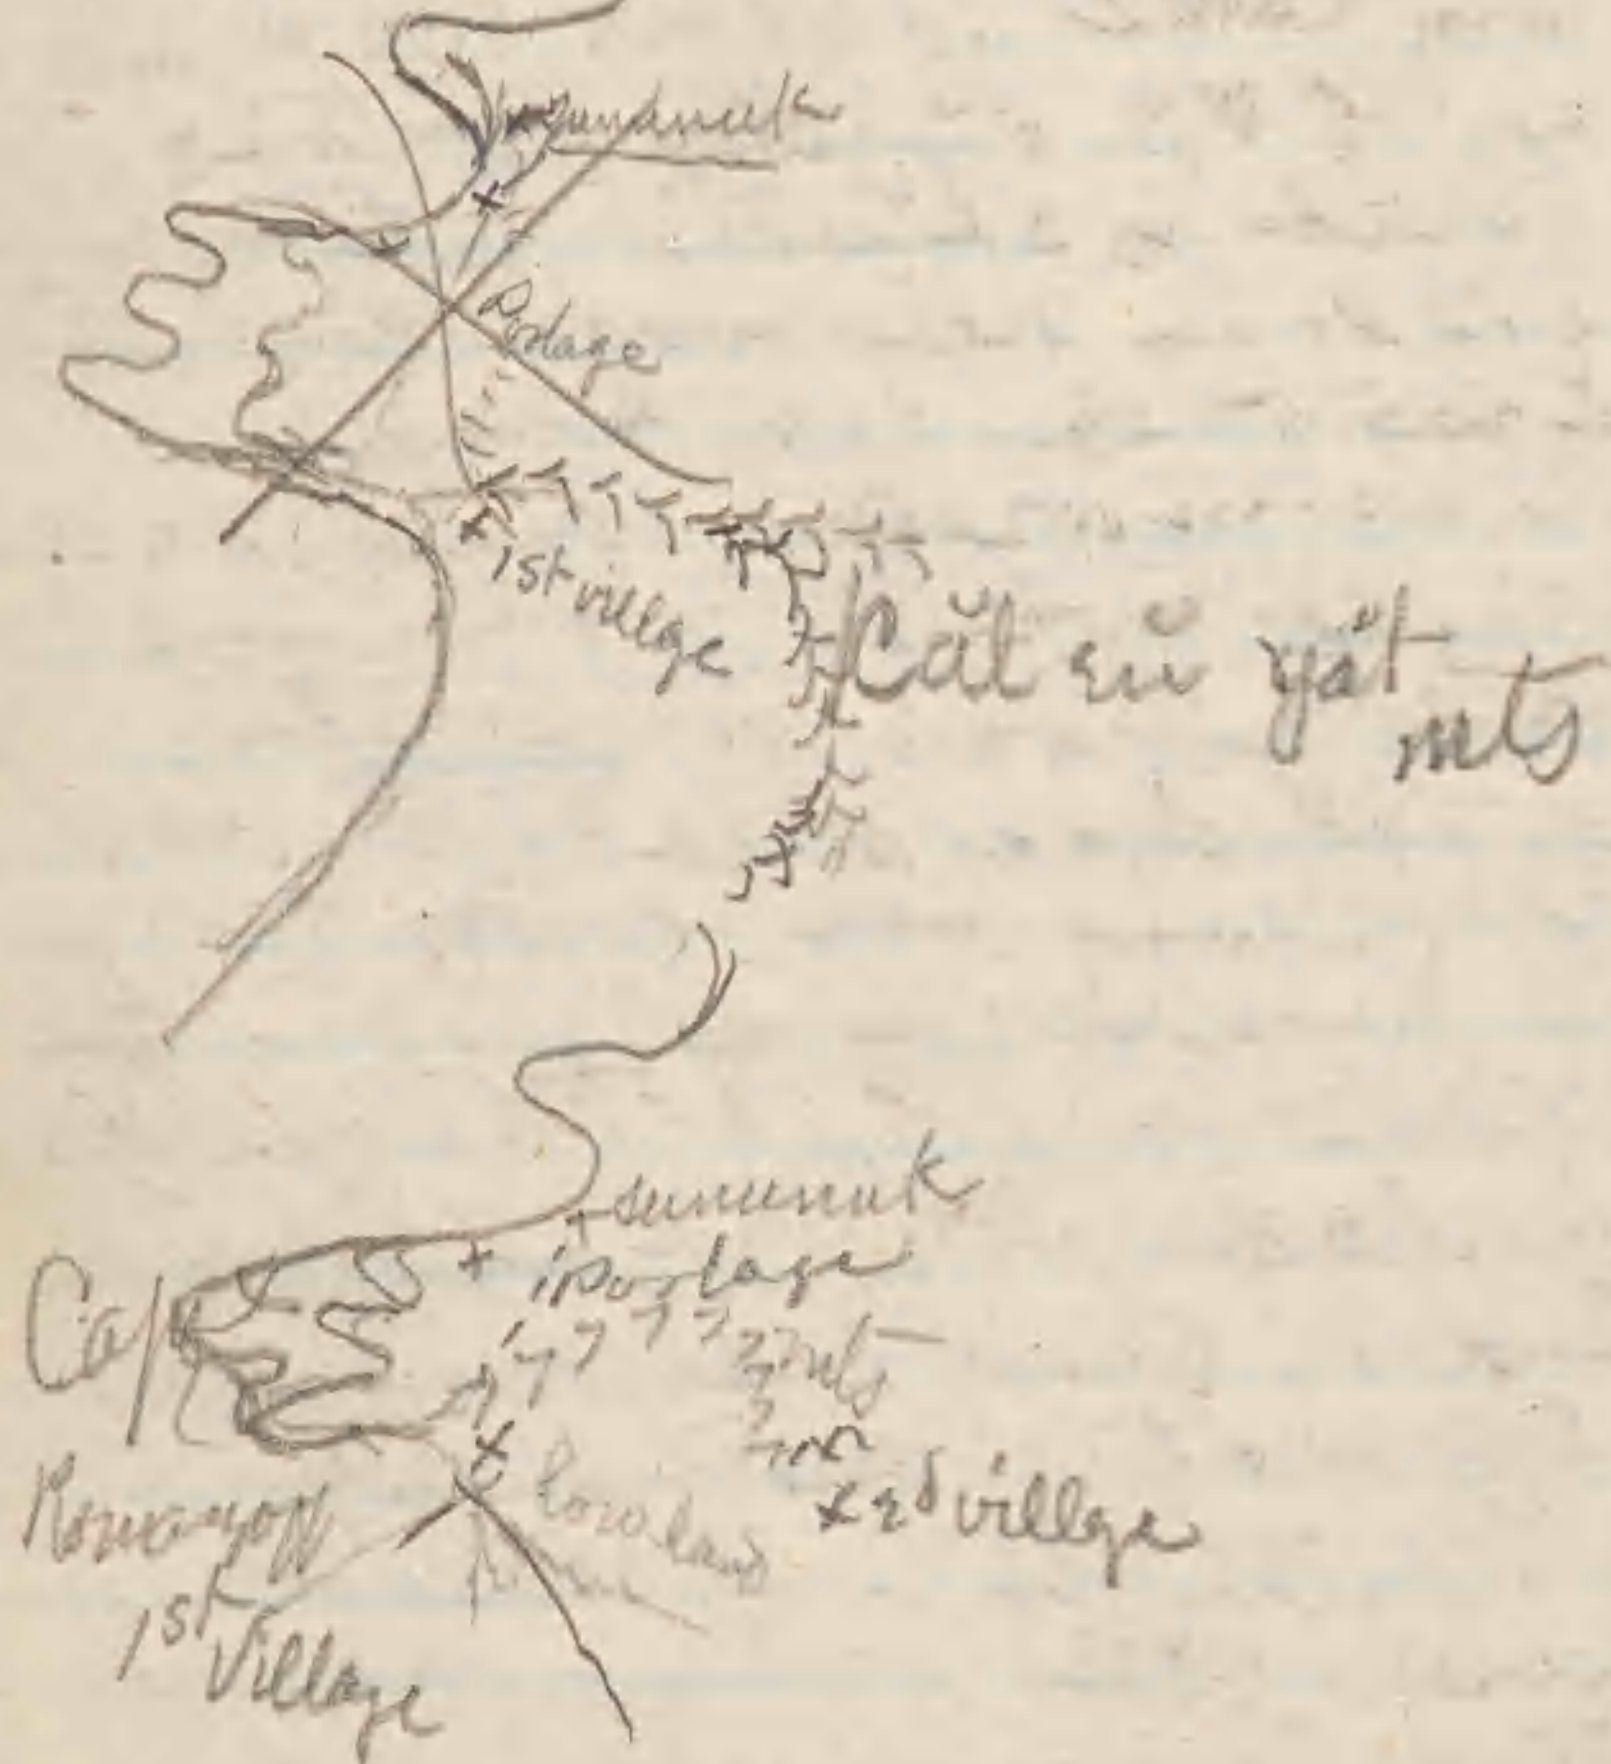 Portage
1st villge
Căl ză yăt
mts
sununuk
Portage
mts
Cape
Romanoff
Low land
x 2d villge
1st
Village